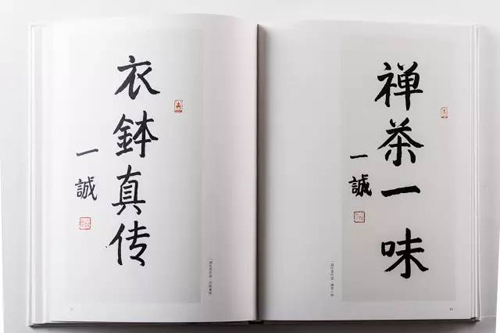 衣鉢真传
一誠
禅茶一味
一誠